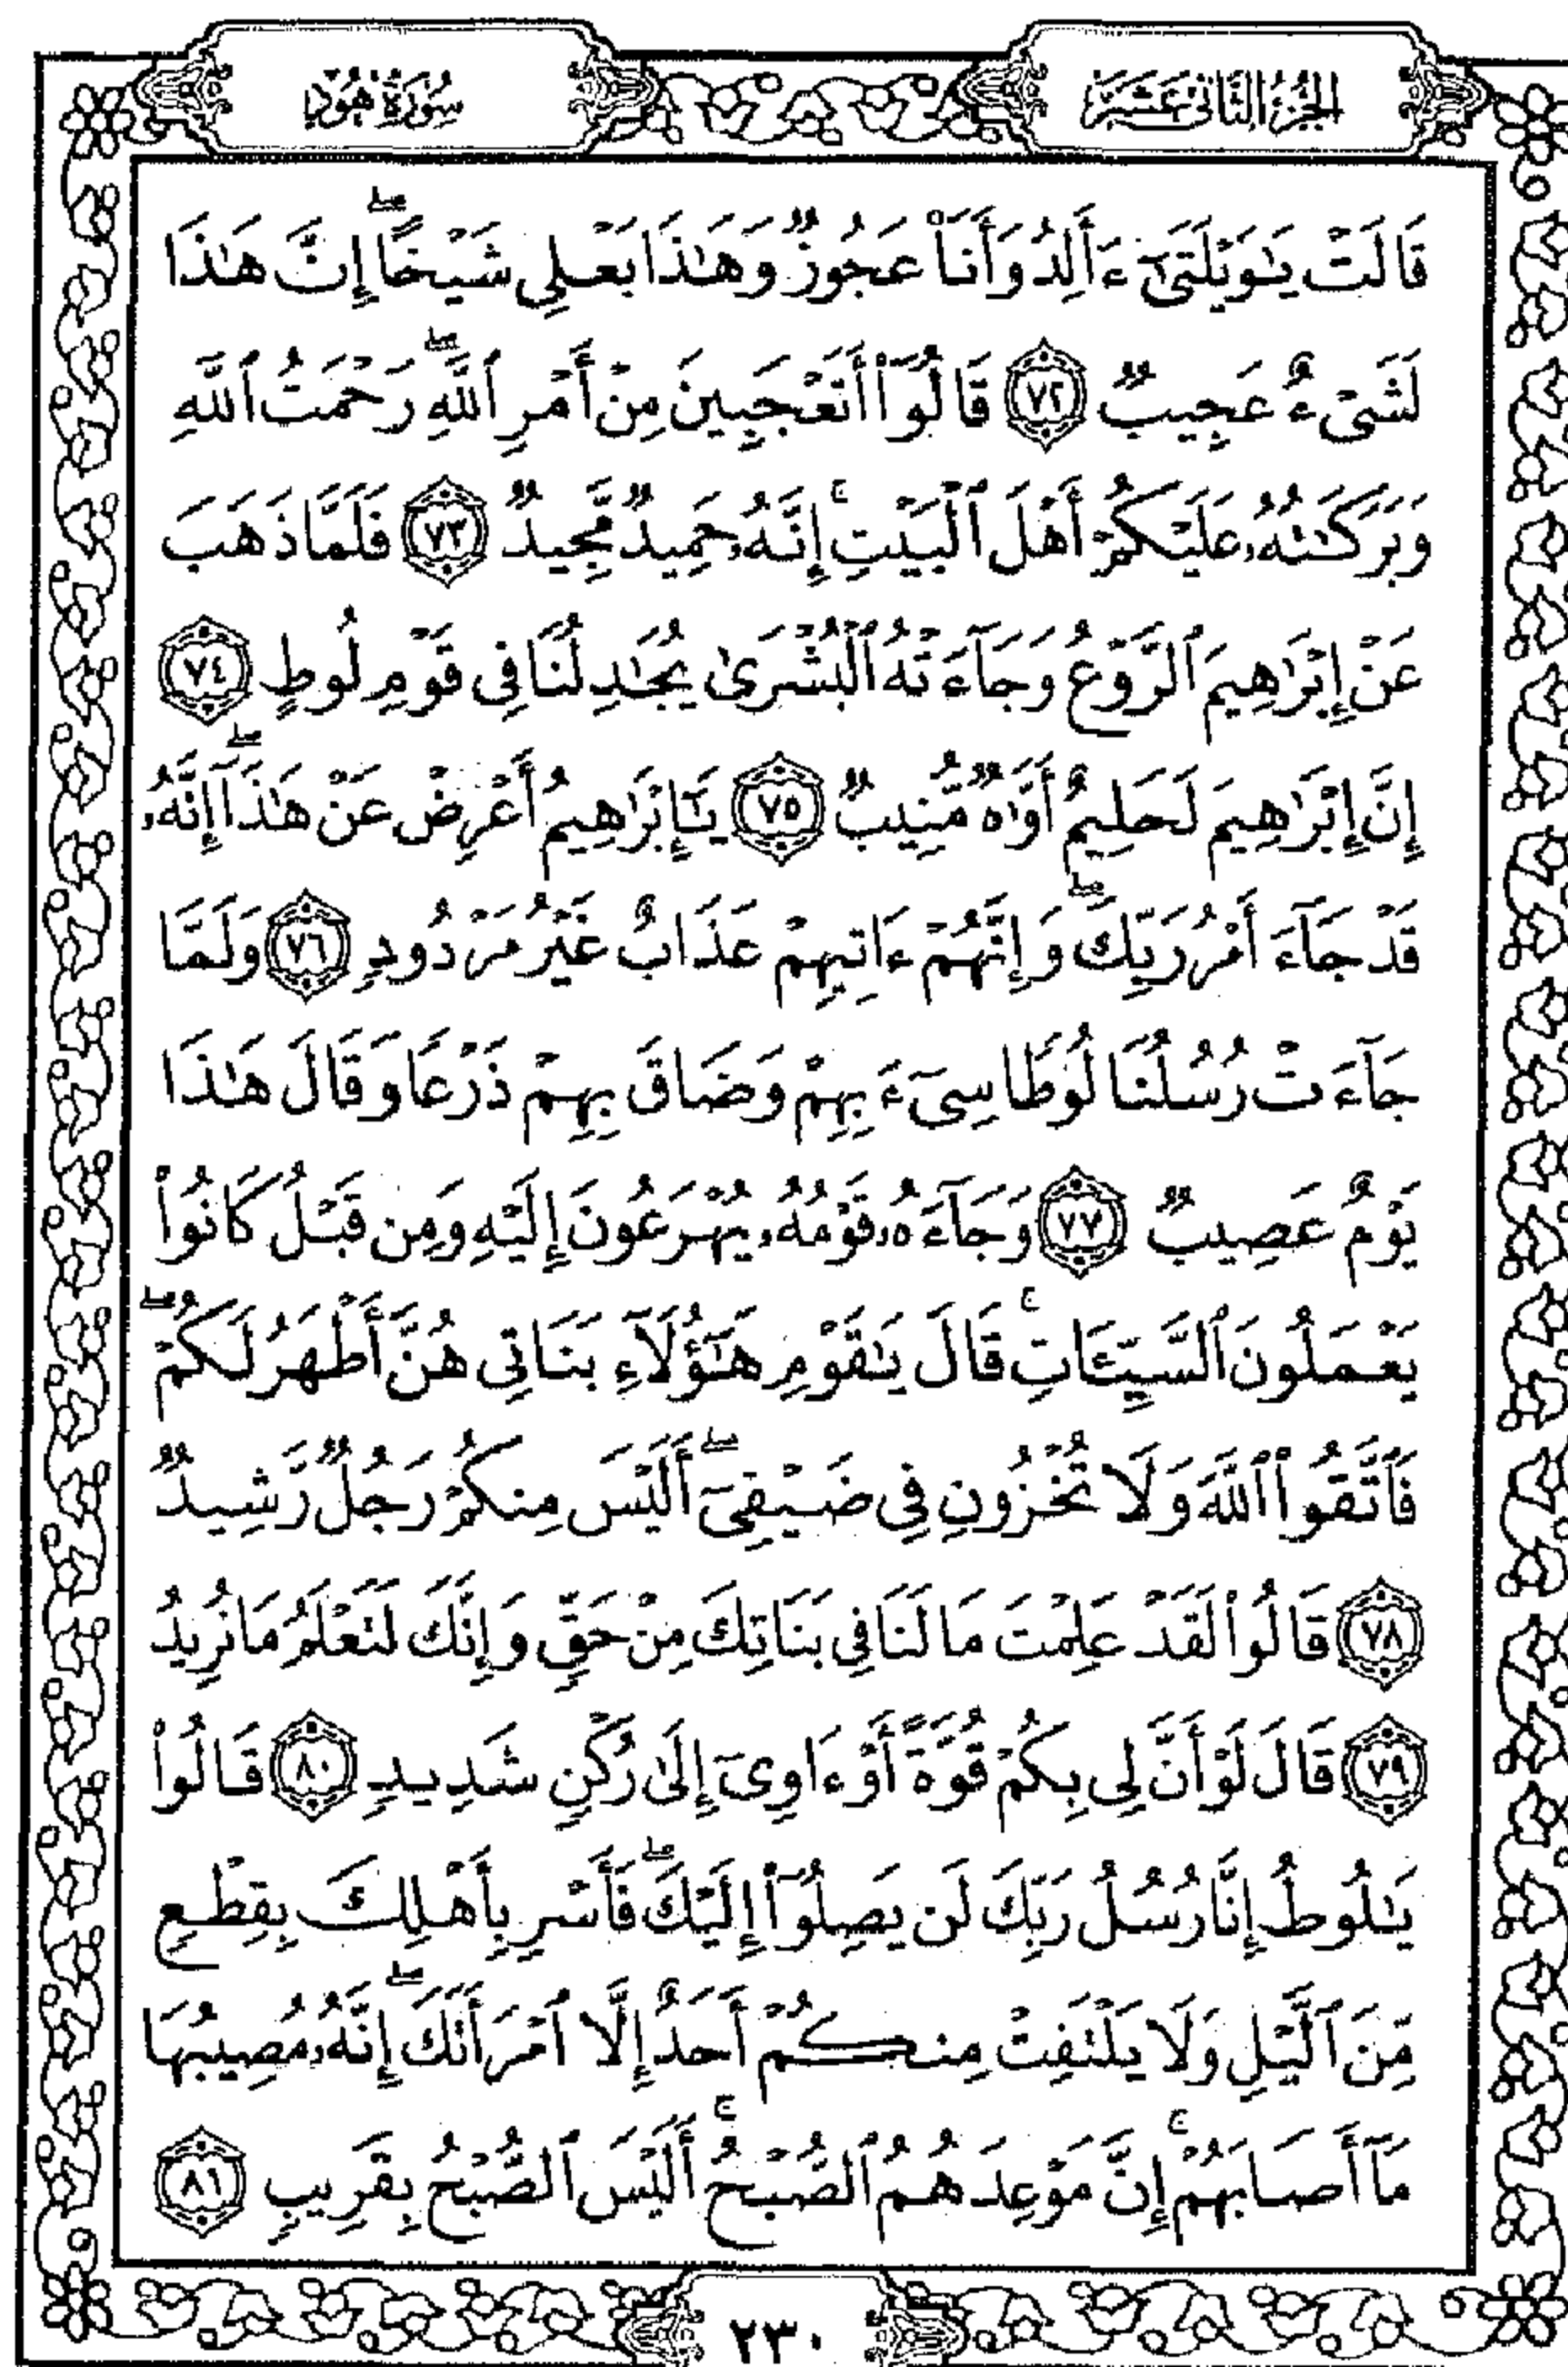 الجزء الثاني عشر
سورة هود
قَالَتْ يَـٰوَيْلَتَىٰٓ ءَأَلِدُ وَأَنَا۠ عَجُوزٌ وَهَـٰذَا بَعْلِى شَيْخًا ۖ إِنَّ هَـٰذَا
لَشَىْءٌ عَجِيبٌ ٧٢ قَالُوٓا۟ أَتَعْجَبِينَ مِنْ أَمْرِ ٱللَّهِ ۖ رَحْمَتُ ٱللَّهِ
وَبَرَكَـٰتُهُۥ عَلَيْكُمْ أَهْلَ ٱلْبَيْتِ ۚ إِنَّهُۥ حَمِيدٌ مَّجِيدٌ ٧٣ فَلَمَّا ذَهَبَ
عَنْ إِبْرَٰهِيمَ ٱلرَّوْعُ وَجَآءَتْهُ ٱلْبُشْرَىٰ يُجَـٰدِلُنَا فِى قَوْمِ لُوطٍ ٧٤
إِنَّ إِبْرَٰهِيمَ لَحَلِيمٌ أَوَّٰهٌ مُّنِيبٌ ٧٥ يَـٰٓإِبْرَٰهِيمُ أَعْرِضْ عَنْ هَـٰذَآ ۖ إِنَّهُۥ
قَدْ جَآءَ أَمْرُ رَبِّكَ ۖ وَإِنَّهُمْ ءَاتِيهِمْ عَذَابٌ غَيْرُ مَرْدُودٍ ٧٦ وَلَمَّا
جَآءَتْ رُسُلُنَا لُوطًا سِىٓءَ بِهِمْ وَضَاقَ بِهِمْ ذَرْعًا وَقَالَ هَـٰذَا
يَوْمٌ عَصِيبٌ ٧٧ وَجَآءَهُۥ قَوْمُهُۥ يُهْرَعُونَ إِلَيْهِ وَمِن قَبْلُ كَانُوا۟
يَعْمَلُونَ ٱلسَّيِّـَٔاتِ ۚ قَالَ يَـٰقَوْمِ هَـٰٓؤُلَآءِ بَنَاتِى هُنَّ أَطْهَرُ لَكُمْ ۖ
فَٱتَّقُوا۟ ٱللَّهَ وَلَا تُخْزُونِ فِى ضَيْفِىٓ ۖ أَلَيْسَ مِنكُمْ رَجُلٌ رَّشِيدٌ
٧٨ قَالُوا۟ لَقَدْ عَلِمْتَ مَا لَنَا فِى بَنَاتِكَ مِنْ حَقٍّ وَإِنَّكَ لَتَعْلَمُ مَا نُرِيدُ
٧٩ قَالَ لَوْ أَنَّ لِى بِكُمْ قُوَّةً أَوْ ءَاوِىٓ إِلَىٰ رُكْنٍ شَدِيدٍ ٨٠ قَالُوا۟
يَـٰلُوطُ إِنَّا رُسُلُ رَبِّكَ لَن يَصِلُوٓا۟ إِلَيْكَ ۖ فَأَسْرِ بِأَهْلِكَ بِقِطْعٍ
مِّنَ ٱلَّيْلِ وَلَا يَلْتَفِتْ مِنكُمْ أَحَدٌ إِلَّا ٱمْرَأَتَكَ ۖ إِنَّهُۥ مُصِيبُهَا
مَآ أَصَابَهُمْ ۚ إِنَّ مَوْعِدَهُمُ ٱلصُّبْحُ ۚ أَلَيْسَ ٱلصُّبْحُ بِقَرِيبٍ ٨١
٢٣٠